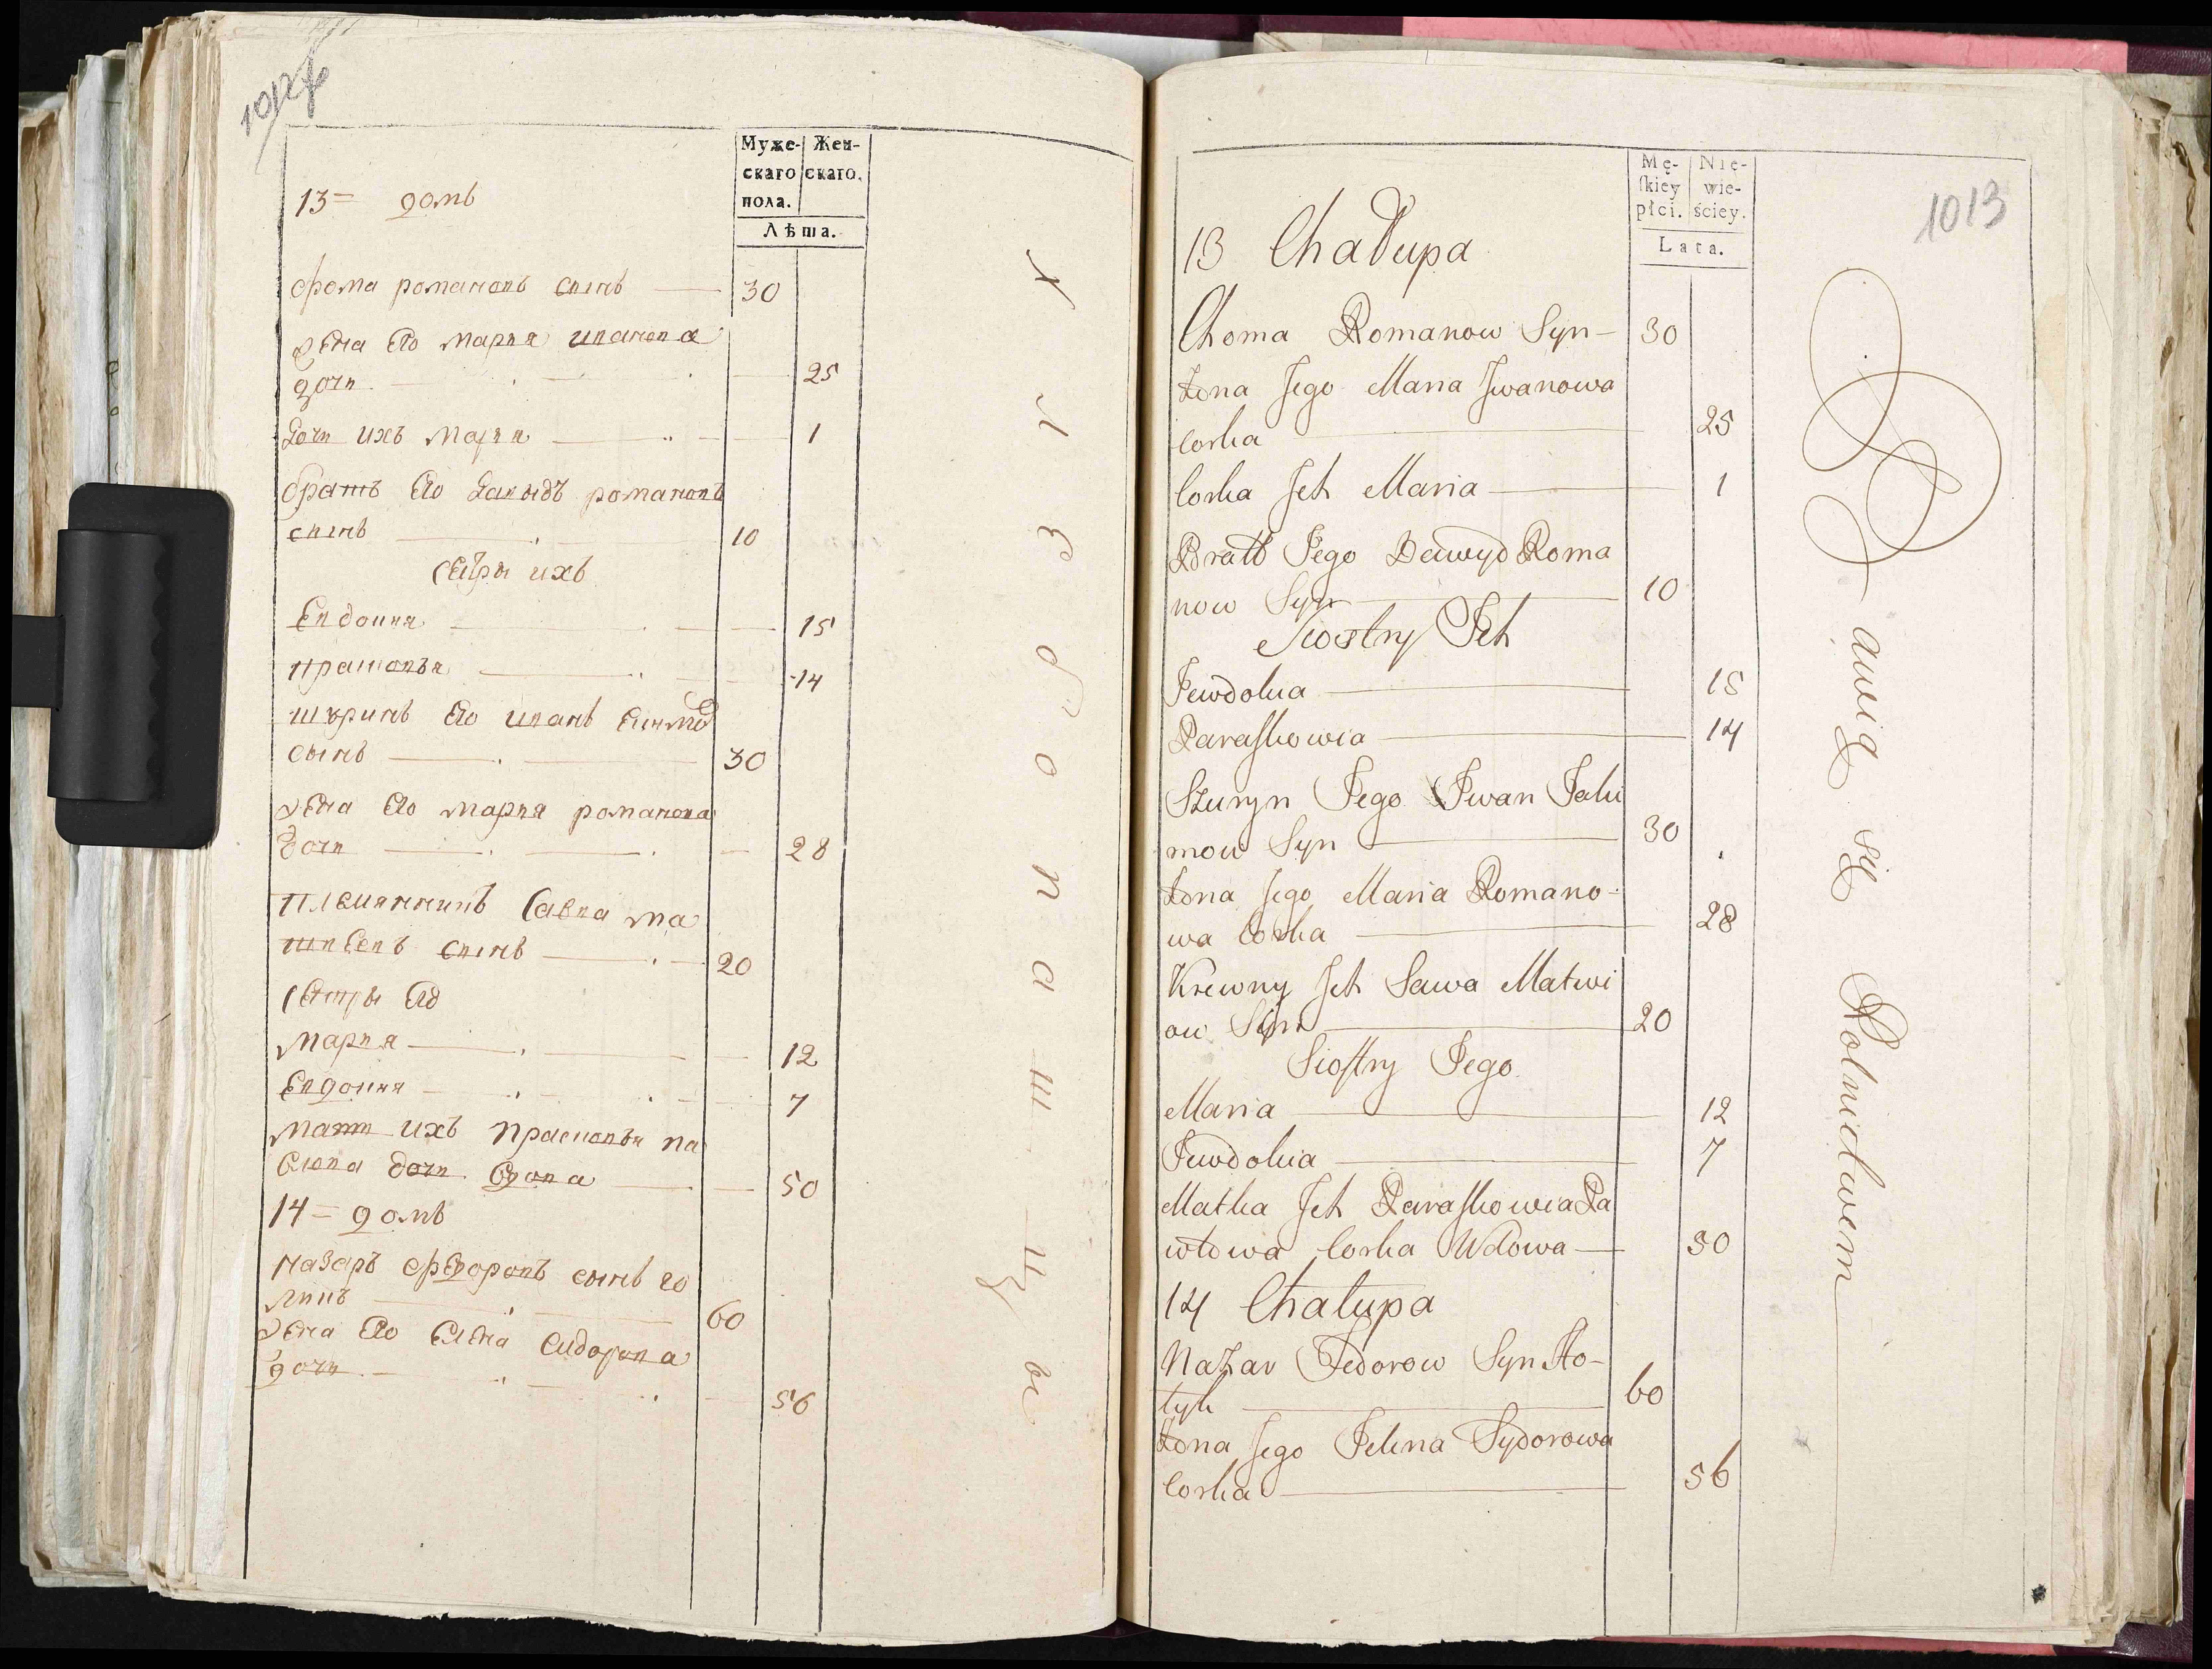 Муже- Жен-
скаго скаго.
пола.
Лѣта.
13= домъ
Фома романовъ сынъ — 30
жена его мария иванова
дочь — 25
Дочь ихъ мария — 1
братъ его давыдъ романовъ
сынъ — 10
сестры ихъ
Евдокия — 15
прасковья — 14
шуринъ его иванъ
сынъ — 30
жена его мария романова
дочь — 28
племянникъ Савка ма
твеевъ сынъ — 20
сестры его
мария — 12
Евдокия — 7
мать ихъ прасковья па
влова дочь вдова — 50
14= домъ
назаръ федоровъ сынъ го
ликъ — 60
жена его елена сидорова
дочь — 56
хлебопашцы
1013
Mę- Nie-
skiey wie-
płci. ściey.
Lata.
13 Chałupa
Choma Romanow Syn — 30
Żona Jego Maria Jwanowa
corka — 25
Corka Jch Maria — 1
Bratt Jego Dawyd Roma
now Syn — 10
Siostry Jch
Jewdokia — 15
Paraskowia — 14
Szuryn Jego Jwan Jaki
mow Syn — 30
Żona Jego Maria Romano-
wa Corka — 28
Krewny Jch Sawa Matwi
ow Syn — 20
Siostry Jego
Maria — 12
Jewdokia — 7
Matka Jch Paraskowia Pa
włowa Corka Wdowa — 50
14 Chałupa
Nazar Fedorow Syn Ho-
łyk — 60
Żona Jego Jelena Sydorowa
Corka — 56
bawią się Rolnictwem